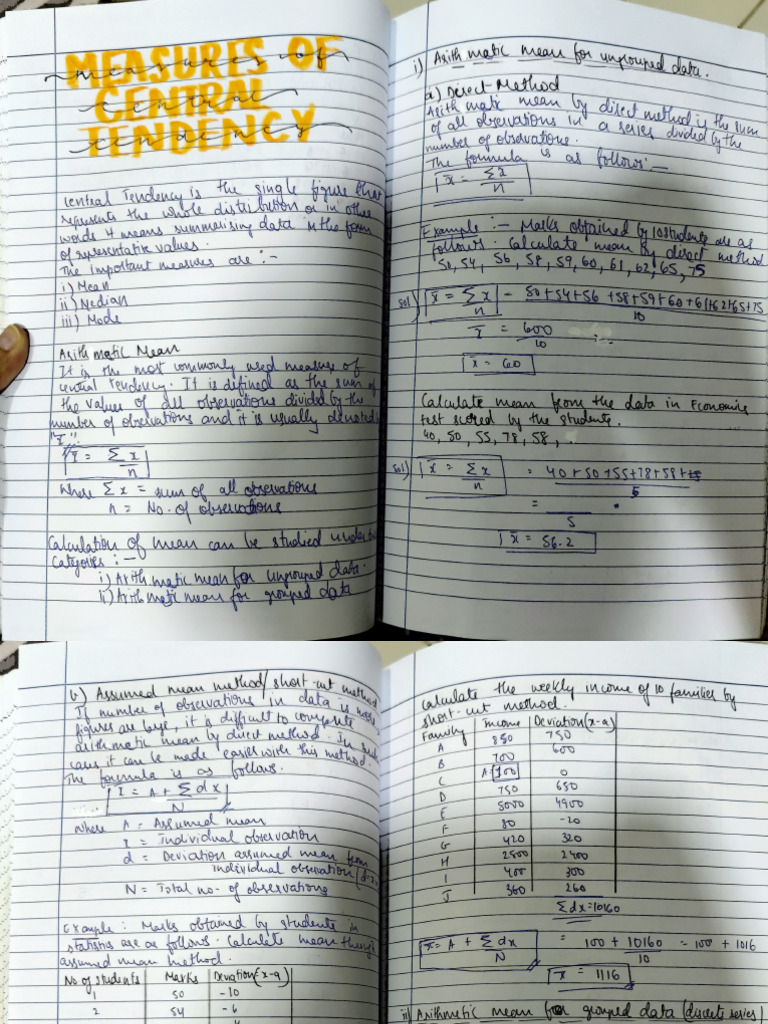 MEASURES OF
CENTRAL
TENDENCY
Central Tendency is the single figure that
represents the whole distribution or in other
words it means summarising data in the form
of representative values.
The important measures are :-
i) Mean
ii) Median
iii) Mode
Arithmatic Mean
It is the most commonly used measure of
central tendency. It is defined as the sum of
the values of all observations divided by the
number of observations and it is usually denoted
x̄ = Σx
n
where Σx = sum of all observations
n = No. of observations
Calculation of mean can be studied under
Categories :-
i) Arithmatic mean for ungrouped data.
ii) Arithmatic mean for grouped data
i) Arithmatic mean for ungrouped data.
a) Direct Method
Arithmatic mean by direct method is the sum
of all observations in a series divided by the
number of observations.
The formula is as follows:-
x̄ = Σx
n
Example :- Marks obtained by 10 students are as
follows. Calculate mean by direct method
50, 54, 56, 58, 59, 60, 61, 62, 65, 75
sol) x̄ = Σx = 50+54+56+58+59+60+61+62+65+75
n 10
x̄ = 600
10
x̄ = 60
Calculate mean from the data in Economics
test scored by the students.
40, 50, 55, 78, 58,
sol) x̄ = Σx = 40+50+55+78+58+
n 5
=
5
x̄ = 56.2
b) Assumed mean method/short-cut method
If number of observations in data is more
figures are large, it is difficult to compute
arithmatic mean by direct method. In such
case, it can be made easier with this method.
The formula is as follows.
x̄ = A + Σdx
N
where A = Assumed mean
X = Individual observation
d = Deviation assumed mean from
individual observation
N = Total no. of observations
Example : Marks obtained by students in
statistics are as follows. Calculate mean
assumed mean method.
No of students Marks Deviation(x-a)
1 50 -10
2 54 -6
Calculate the weekly income of 10 families by
short-cut method.
Family Income Deviation(x-a)
A 850 750
B 700 600
C A 100 0
D 750 650
E 5000 4900
F 80 -20
G 420 320
H 2500 2400
I 400 300
J 360 260
Σdx=10160
x̄ = A + Σdx = 100 + 10160 = 100 + 1016
N 10
x̄ = 1116
ii) Arithmetic mean for grouped data (discrete series)